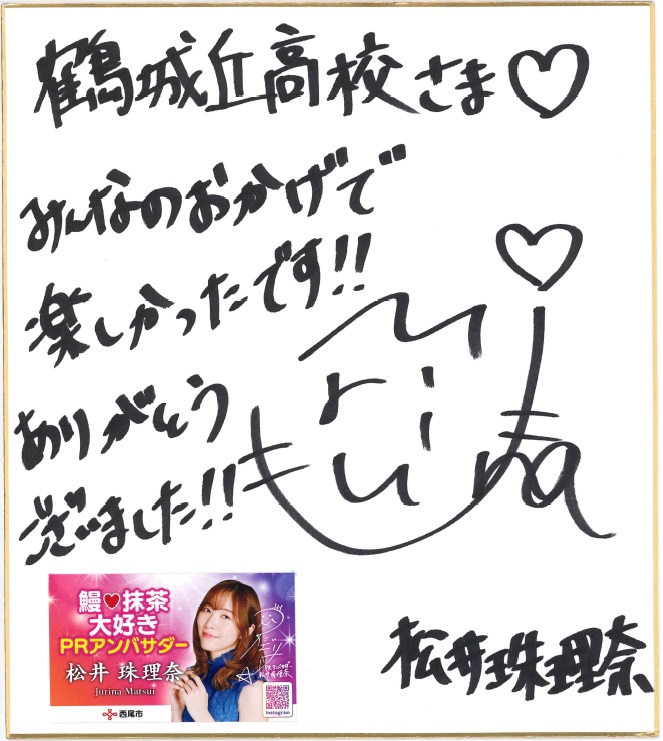 鶴城丘高校さま♡
みんなのおかげで
楽しかったです!!
ありがとう
ございました!!
松井珠理奈
鰻♥抹茶
大好き
PRアンバサダー
松井 珠理奈
Jurina Matsui
西尾市
松井珠理奈
Instagram